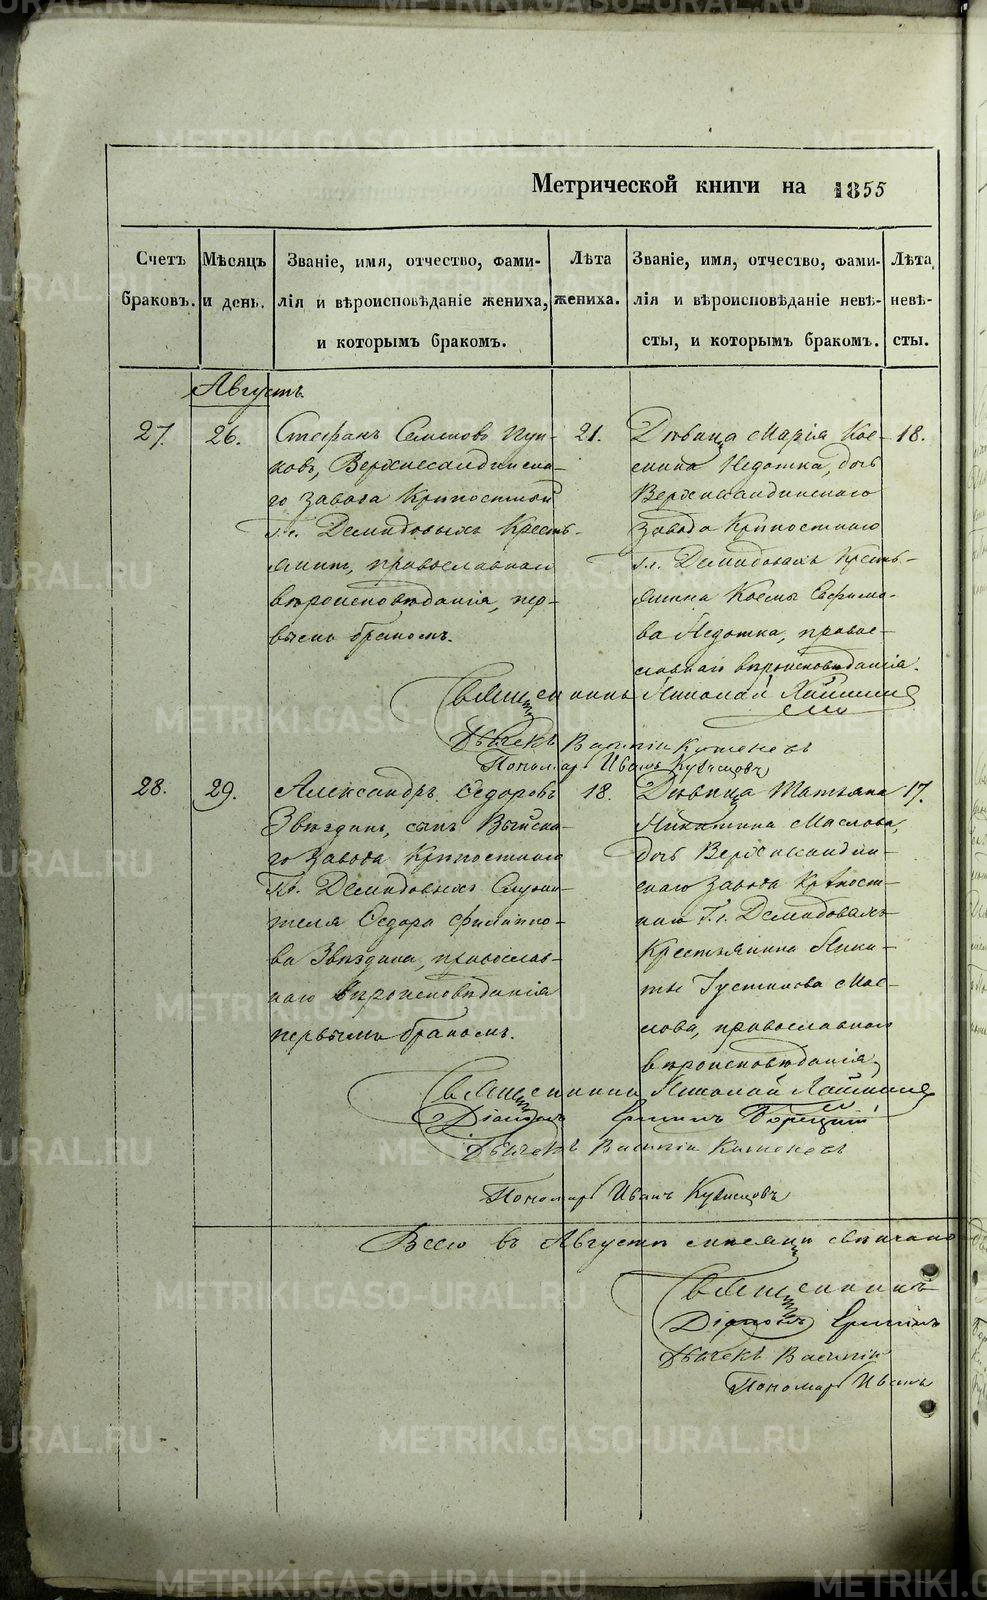 Метрической книги на 1855
Счетъ браковъ.
Мѣсяцъ и день.
Званіе, имя, отчество, фами-
лія и вѣроисповѣданіе жениха,
и которымъ бракомъ.
Лѣта жениха.
Званіе, имя, отчество, фами-
лія и вѣроисповѣданіе невѣ-
сты, и которымъ бракомъ.
Лѣта невѣ-
сты.
Августъ.
27.
26.
Стефанъ Семеновъ
ковъ, Верхнесалдинска-
го завода Крѣпостной
Гг. Демидовыхъ Кресть-
янинъ, православнаго
вѣроисповѣданія, пер-
вымъ бракомъ.
21.
Дѣвица Марія Кос-
мина Недошка, дочь
Верхнесалдинскаго
завода Крѣпостнаго
Гг. Демидовыхъ Кресть-
янина Космы Ефимо-
ва Недошка, правос-
лавнаго вѣроисповѣданія.
18.
Священникъ Николай
Дьячекъ Василій
Пономарь Иванъ Кузнецовъ
28.
29.
Александръ Ѳедоровъ
Звѣздинъ, сынъ Выйска-
го завода Крѣпостнаго
Гг. Демидовыхъ Служи-
теля Ѳедора Филиппо-
ва Звѣздина, православ-
наго вѣроисповѣданія
первымъ бракомъ.
18.
Дѣвица Татьяна
Никитина Маслова,
дочь Верхнесалдин-
скаго завода Крѣпост-
наго Гг. Демидовыхъ
Крестьянина Ники-
ты Густинова Мас-
лова, православнаго
вѣроисповѣданія
17.
Священникъ Николай
Діаконъ
Дьячекъ Василій
Пономарь Иванъ Кузнецовъ
Всего въ Августѣ мѣсяцѣ свѣнчано
Священникъ
Діаконъ
Дьячекъ Василій
Пономарь Иванъ
METRIKI.GASO-URAL.RU